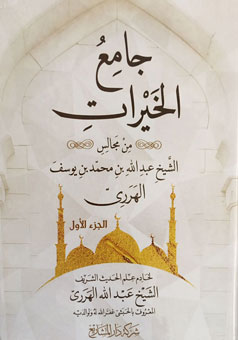 جَامِعُ
الخَيْرَاتِ
مِنْ مَجَالِسِ
الشَّيْخ عَبْدِ اللهِ بنِ مُحَمَّد بنِ يوسفَ
الهَرَرِيّ
الجزء الأول
لخادم علم الحديث الشريف
الشَّيْخ عَبْدُ الله الهَرَرِيّ
المعروف بالحبشي غفر الله له ولوالديه
شركة دار المشاريع